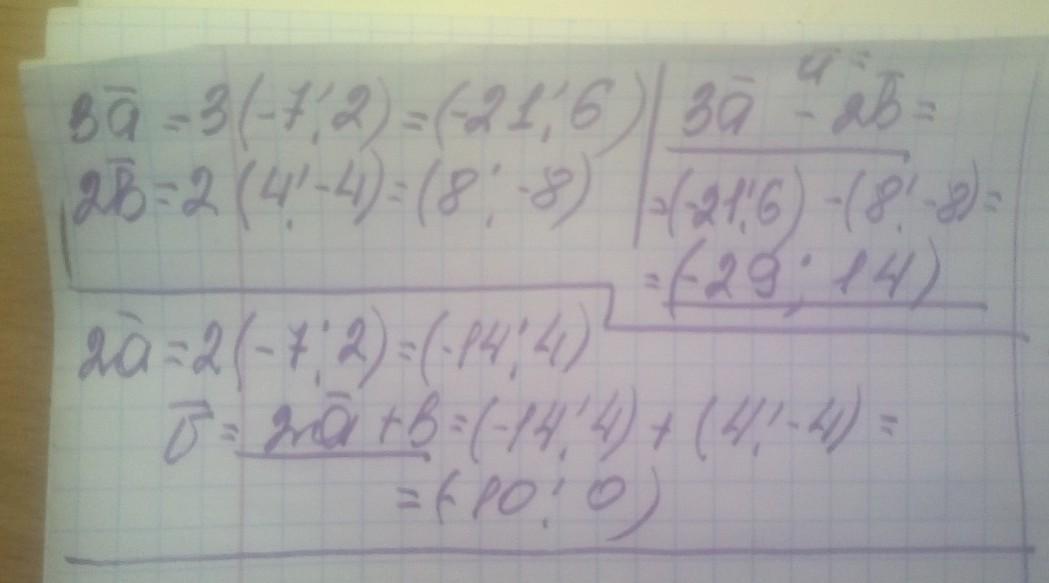 3a̅ = 3(-7; 2) = (-21; 6)
2b̅ = 2(4; -4) = (8; -8)
u̅ =
3a̅ - 2b̅ =
= (-21; 6) - (8; -8) =
= (-29; 14)
2a̅ = 2(-7; 2) = (-14; 4)
v̅ = 2a̅ + b = (-14; 4) + (4; -4) =
= (-10; 0)